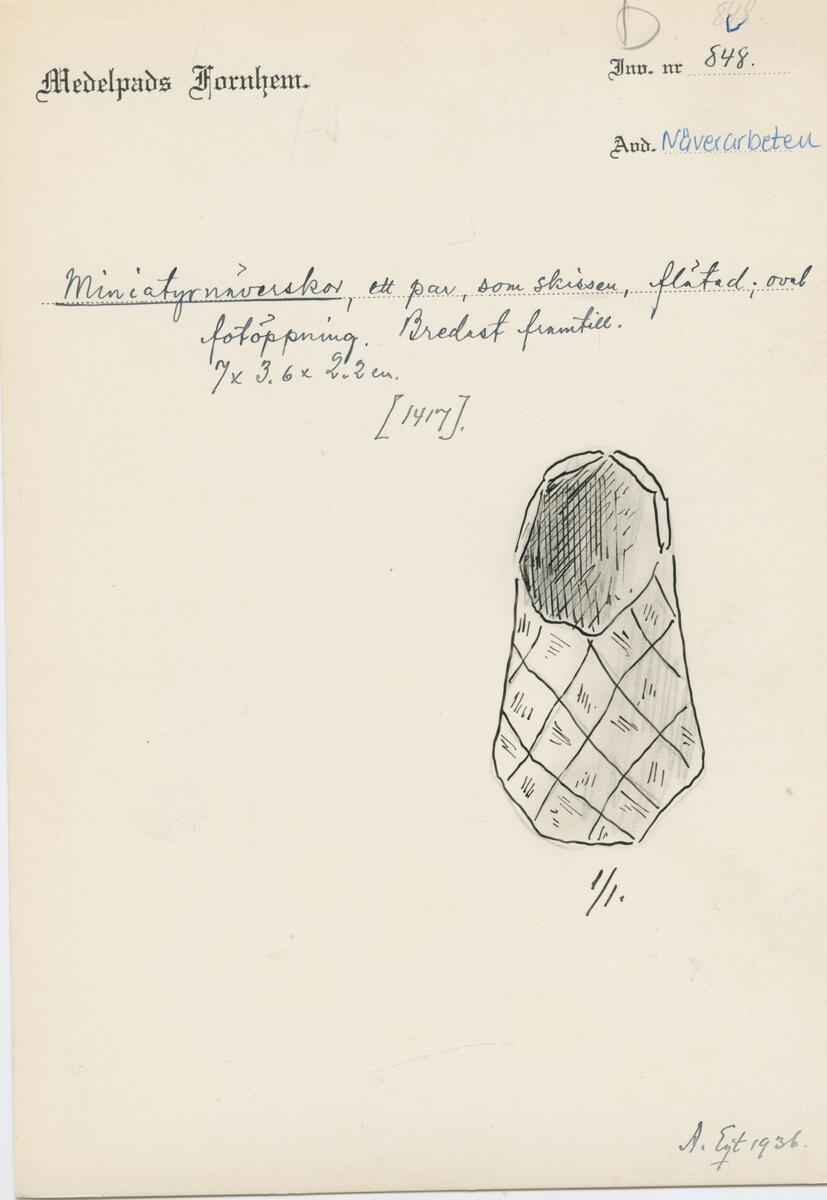 D
848.
Medelpads Fornhem.
Inv. nr 848.
Avd. Näverarbeten
Miniatyrnäverskor, ett par, som skissen, flätad; oval
fotöppning. Bredast framtill.
7 x 3.6 x 2.2 cm.
[1417].
1/1.
A. Eqt 1936.